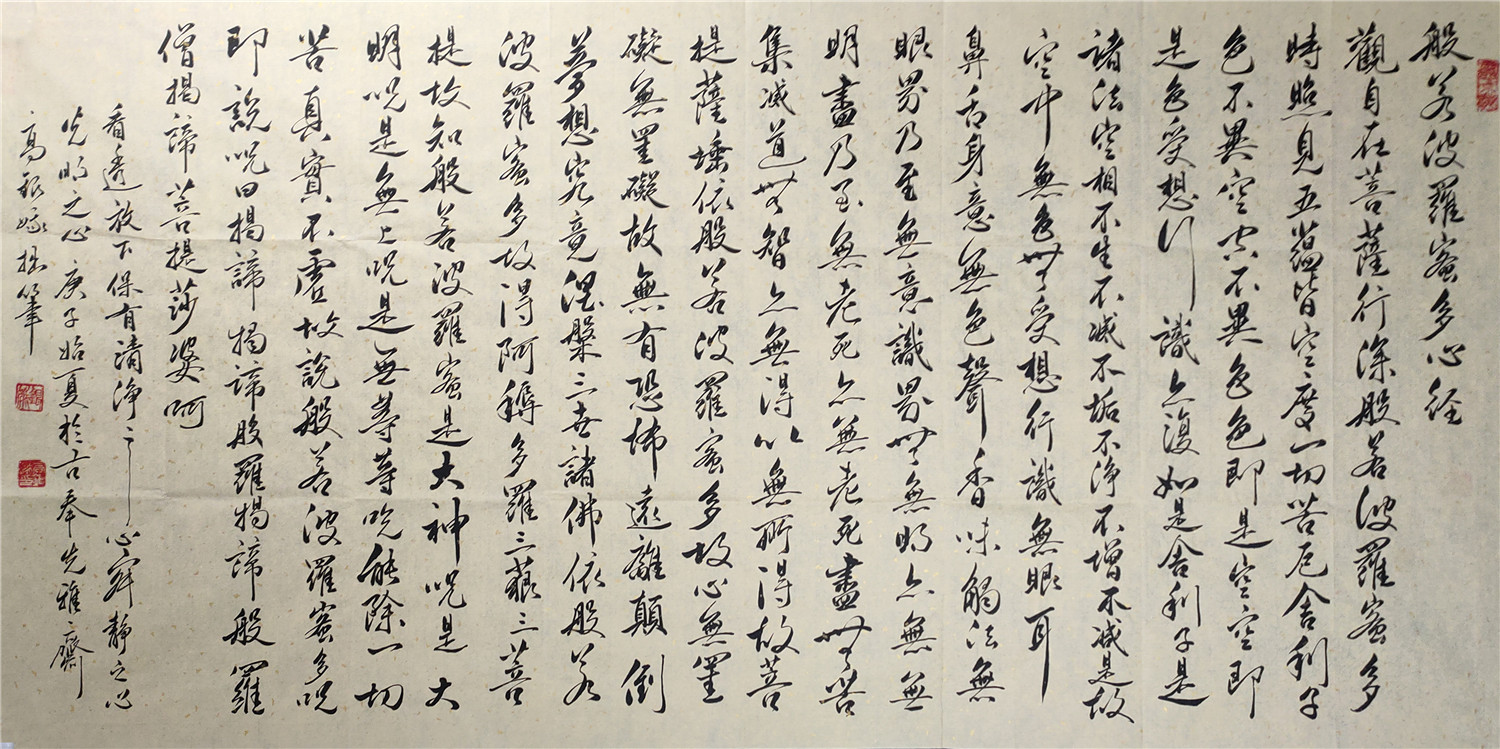 般若波羅蜜多心经
觀自在菩薩行深般若波羅蜜多
時照見五蘊皆空度一切苦厄舍利子
色不異空空不異色色即是空空即
是色受想行識亦復如是舍利子是
諸法空相不生不减不垢不净不增不减是故
空中無色無受想行識無眼耳
鼻舌身意無色聲香味觸法無
眼界乃至無意識界無無明亦無無
明盡乃至無老死亦無老死盡無苦
集滅道無智亦無得以無所得故菩
提薩埵依般若波羅蜜多故心無罣
礙無罣礙故無有恐怖遠離顛倒
夢想究竟涅槃三世諸佛依般若
波羅蜜多故得阿耨多羅三藐三菩
提故知般若波羅蜜是大神咒是大
明咒是無上咒是無等等咒能除一切
苦真實不虛故說般若波羅蜜多咒
即說咒曰揭諦揭諦般羅揭諦般羅
僧揭諦菩提莎婆呵
看透放下保有清净之心寂静之心
光明之心庚子始夏於古奉先雅齋
高銀拙筆